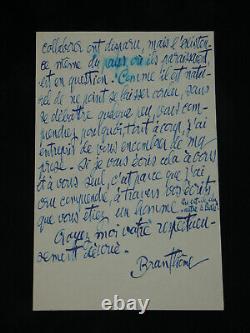 collaborer ont disparu, mais l'existen-
ce même du pays où ils paraissaient
est en question. Comme il est natu-
rel de ne point se laisser couler, sans
se débattre quelque peu, sans com-
prendre pourquoi tant à coup, j'ai
entrepris de vous encombrer de ma
prose. Si je vous écris cela à vous
et à vous seul, c'est parce que j'ai
cru comprendre, à travers vos écrits
que vous étiez un homme
Croyez moi votre respectueu-
sement dévoué.
Branthôme
© picclick.fr